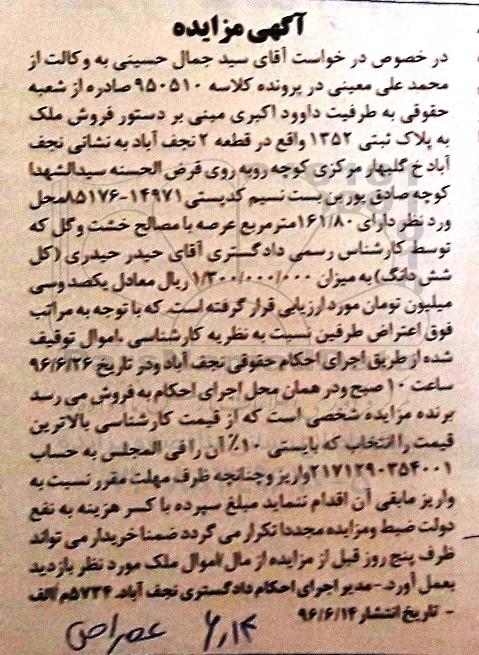 آگهی مزایده
در خصوص در خواست آقای سید جمال حسینی به وکالت از
محمد علی معینی در پرونده کلاسه ۹۵۰۵۱۰ صادره از شعبه
حقوقی به طرفیت داوود اکبری مبنی بر دستور فروش ملک
به پلاک ثبتی ۱۳۵۲ واقع در قطعه ۲ نجف آباد به نشانی نجف
آباد خ گلبهار مرکزی کوچه روبه روی قرض الحسنه سیدالشهدا
کوچه صادق پور بن بست نسیم کدپستی ۱۴۹۷۱-۸۵۱۷۶محل
ورد نظر دارای ۱۶۱/۸۰مترمربع عرصه با مصالح خشت وگل که
توسط کارشناس رسمی دادگستری آقای حیدر حیدری (کل
شش دانگ) به میزان ۱/۳۰۰/۰۰۰/۰۰۰ ریال معادل یکصد وسی
میلیون تومان مورد ارزیابی قرار گرفته است. که با توجه به مراتب
فوق اعتراض طرفین نسبت به نظریه کارشناسی ،اموال توقیف
شده از طریق اجرای احکام حقوقی نجف آباد ودر تاریخ ۹۶/۶/۲۶
ساعت ۱۰ صبح ودر همان محل اجرای احکام به فروش می رسد
برنده مزایده شخصی است که از قیمت کارشناسی بالاترین
قیمت را انتخاب که بایستی ۱۰٪ آن را فی المجلس به حساب
۲۱۷۱۲۹۰۳۵۴۰۰۱واریز وچنانچه ظرف مهلت مقرر نسبت به
واریز مابقی آن اقدام ننماید مبلغ سپرده با کسر هزینه به نفع
دولت ضبط ومزایده مجددا تکرار می گردد ضمنا خریدار می تواند
ظرف پنج روز قبل از مزایده از مال /اموال ملک مورد نظر بازدید
بعمل آورد. -مدیر اجرای احکام دادگستری نجف آباد. ۵۷۳۴م/الف
- تاریخ انتشار ۹۶/۶/۱۴
۶٫۱۴ عصر